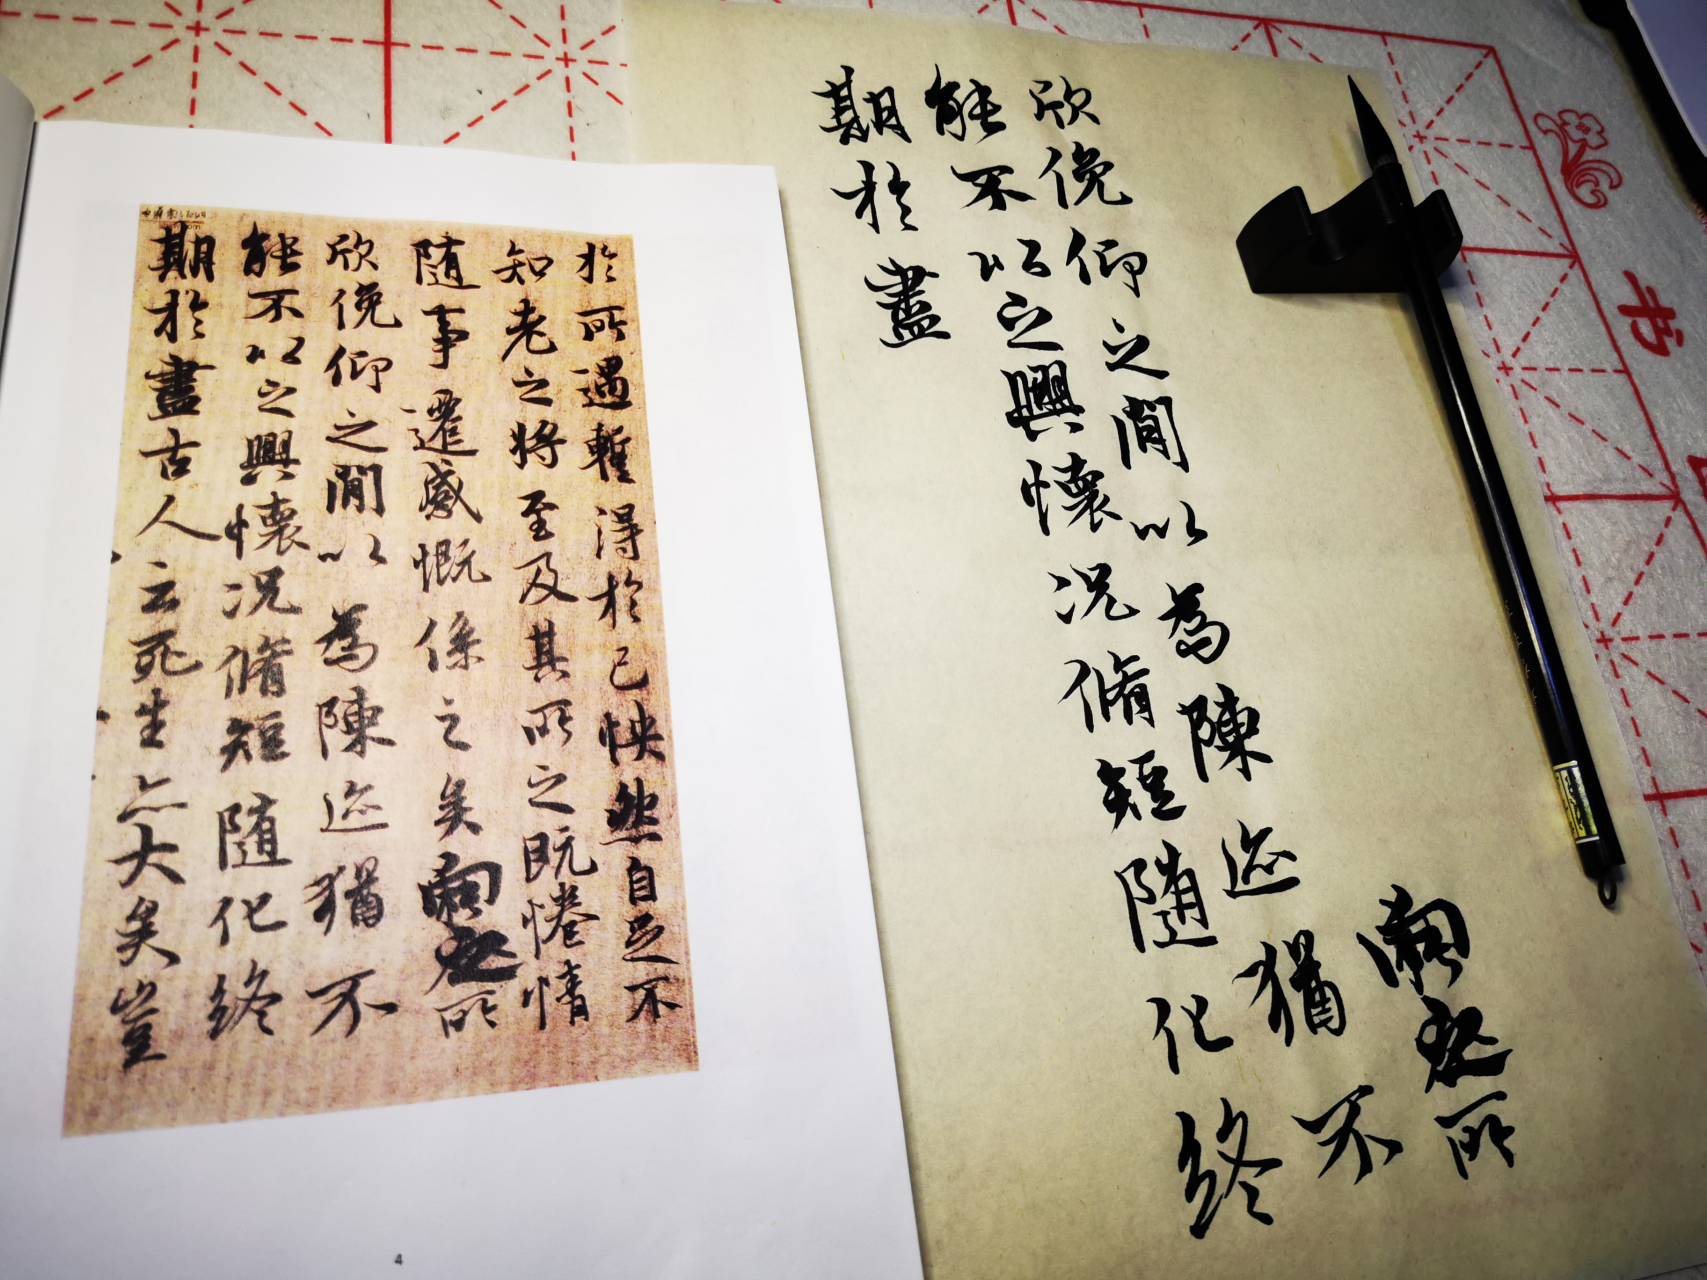 於所遇暫得於己怏然自足不
知老之將至及其所之既惓情
随事遷感慨係之矣向之所
欣俛仰之閒以為陳迹猶不
能不以之興懷况脩短随化終
期於盡古人云死生亦大矣豈
4
向之所
欣俛仰之閒以為陳迹猶不
能不以之興懷况脩短随化終
期於盡
书